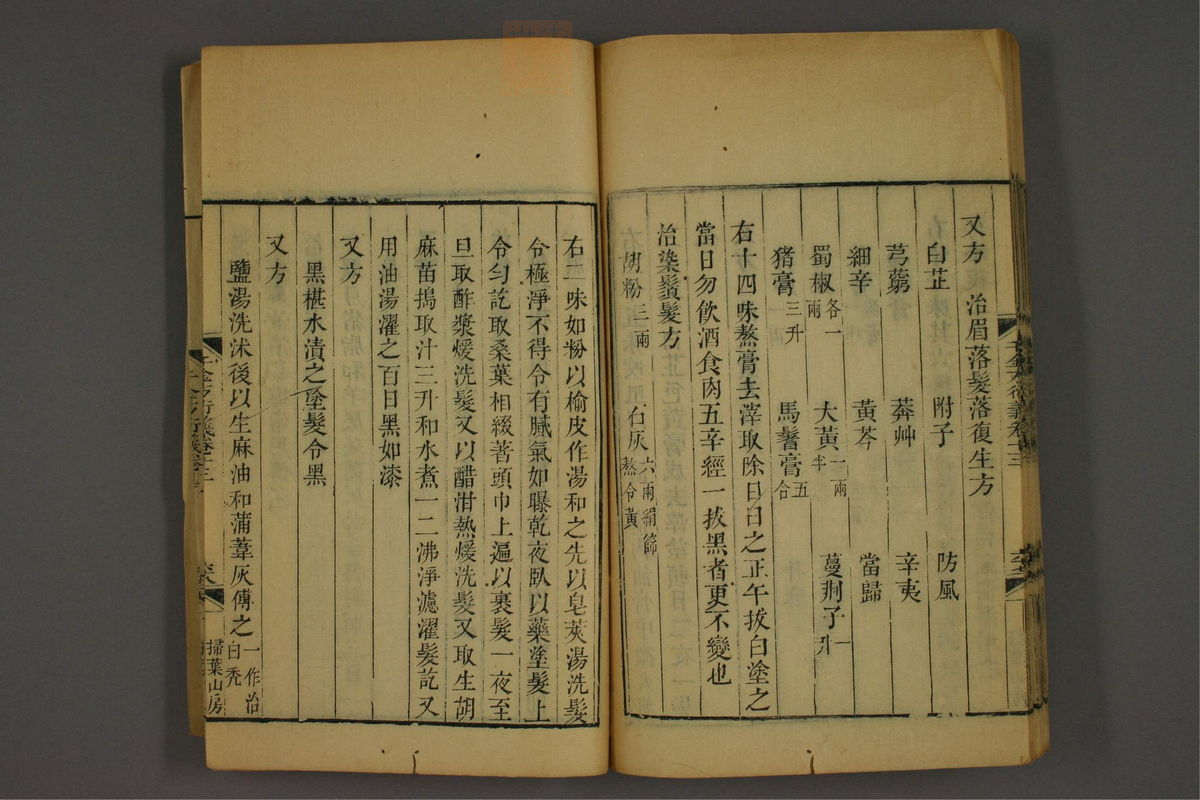 又方 治眉落髮落復生方
白芷 附子 防風
芎藭 莽艸 辛夷
細辛 黃芩 當歸
蜀椒各一兩 大黃一兩半 蔓荆子一升
猪膏三升 馬鬐膏五合
右十四味熬膏去滓取除日日之正午拔白塗之
當日勿飲酒食肉五辛經一拔黑者更不變也
治染鬚髮方
胡粉三兩 石灰六兩絹篩熬令黃
右二味如粉以榆皮作湯和之先以皂莢湯洗髮
令極淨不得令有膩氣如曝乾夜臥以藥塗髮上
令勻訖取桑葉相綴著頭巾上遍以裹髮一夜至
旦取酢漿煖洗髮又以醋泔熱煖洗髮又取生胡
麻苗搗取汁三升和水煮一二沸淨濾濯髮訖又
用油湯濯之百日黑如漆
又方
黑椹水漬之塗髮令黑
又方
鹽湯洗沐後以生麻油和蒲葦灰傅之一作治白禿
千金方衍義卷十三
掃葉山房